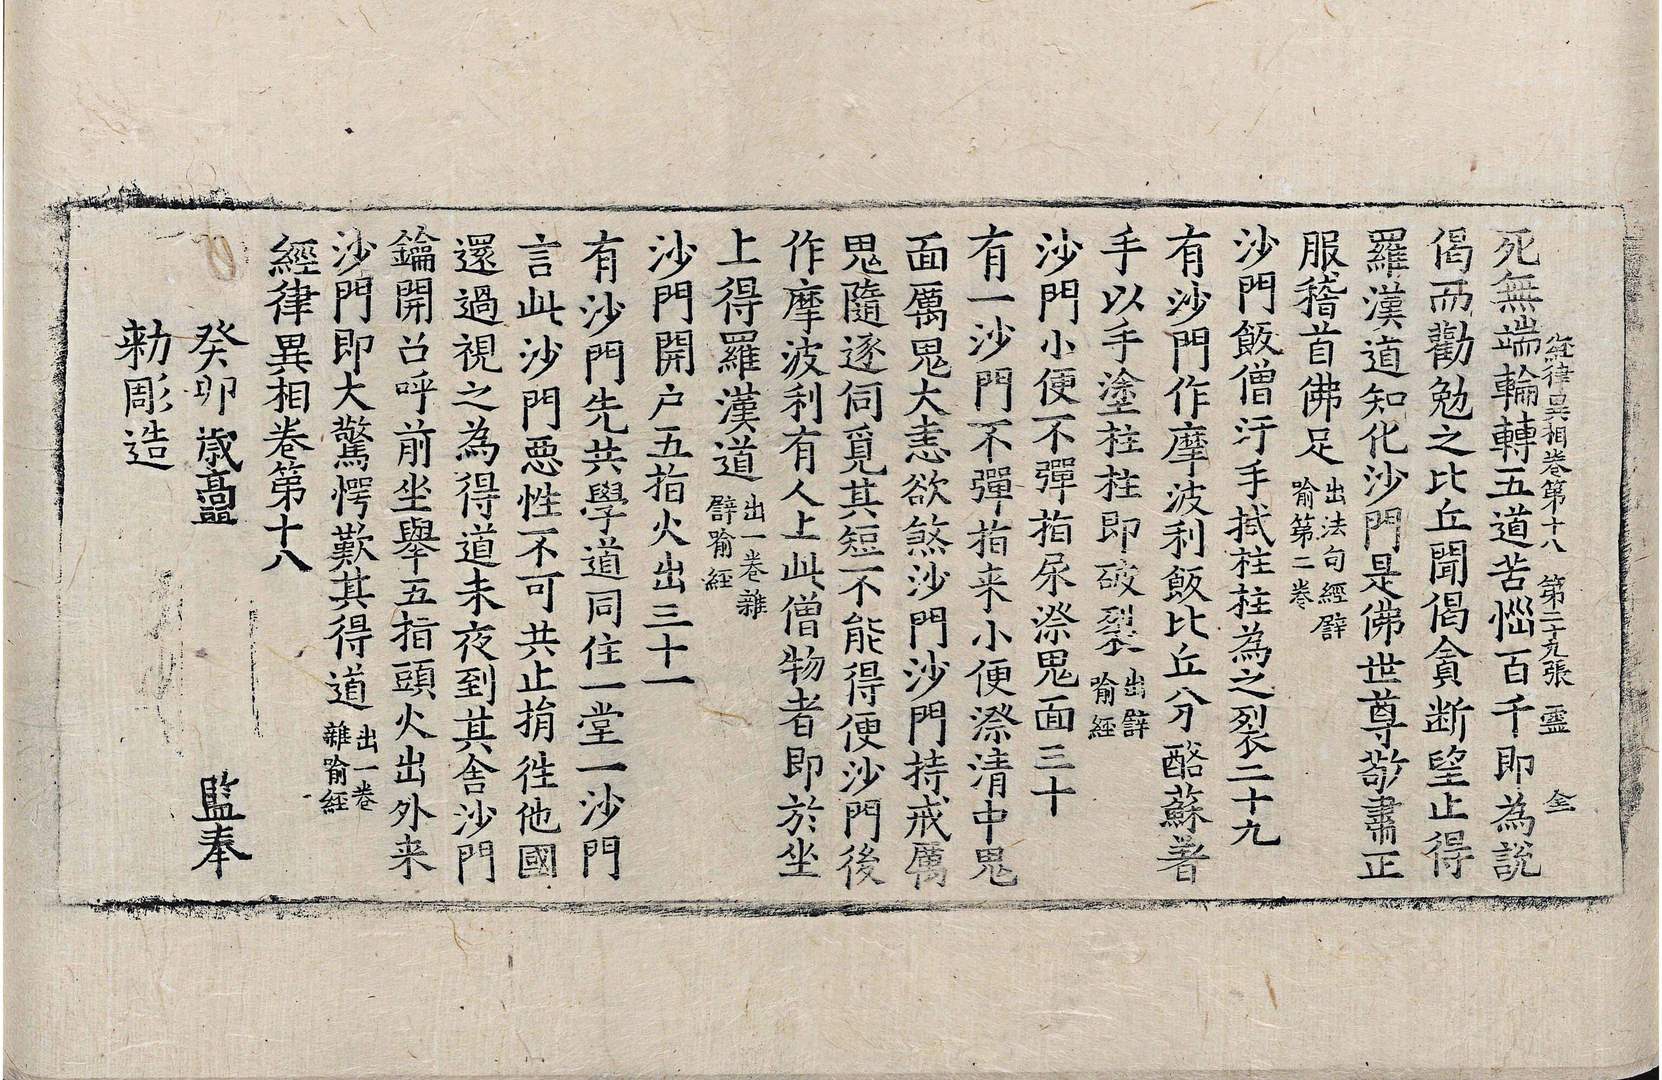 經律異相卷第十八 第二十九張 靈 仝
死無端輪轉五道苦惱百千即為說
偈而勸勉之比丘聞偈貪断望止得
羅漢道知化沙門是佛世尊敬肅正
服稽首佛足 出法句經譬
喻第二卷
沙門飯僧汙手拭柱柱為之裂二十九
有沙門作摩波利飯比丘分酪蘇著
手以手塗柱柱即破裂 出譬
喻經
沙門小便不彈指尿漈鬼面三十
有一沙門不彈指来小便漈清中鬼
面厲鬼大恚欲煞沙門沙門持戒厲
鬼隨逐伺覓其短不能得便沙門後
作摩波利有人上此僧物者即於坐
上得羅漢道 出一卷雜
譬喻經
沙門開户五指火出三十一
有沙門先共學道同住一堂一沙門
言此沙門惡性不可共止捐徃他國
還過視之為得道未夜到其舍沙門
鑰開呂呼前坐舉五指頭火出外来
沙門即大驚愕歎其得道 出一卷
雜喻經
經律異相卷第十八
癸卯歳高麗國大藏都監奉
勑彫造